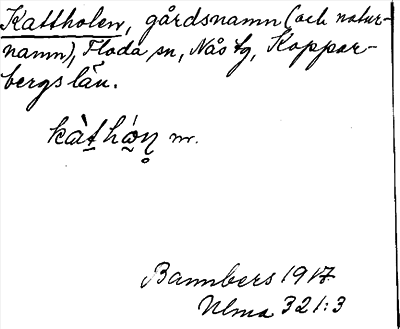 Kattholen, gårdsnamn (och natur-
namn), Floda sn, Nås tg, Koppar-
bergs län.
kàt̲hó̲n̥ m.
Bannbers 1917
Ulma 321:3